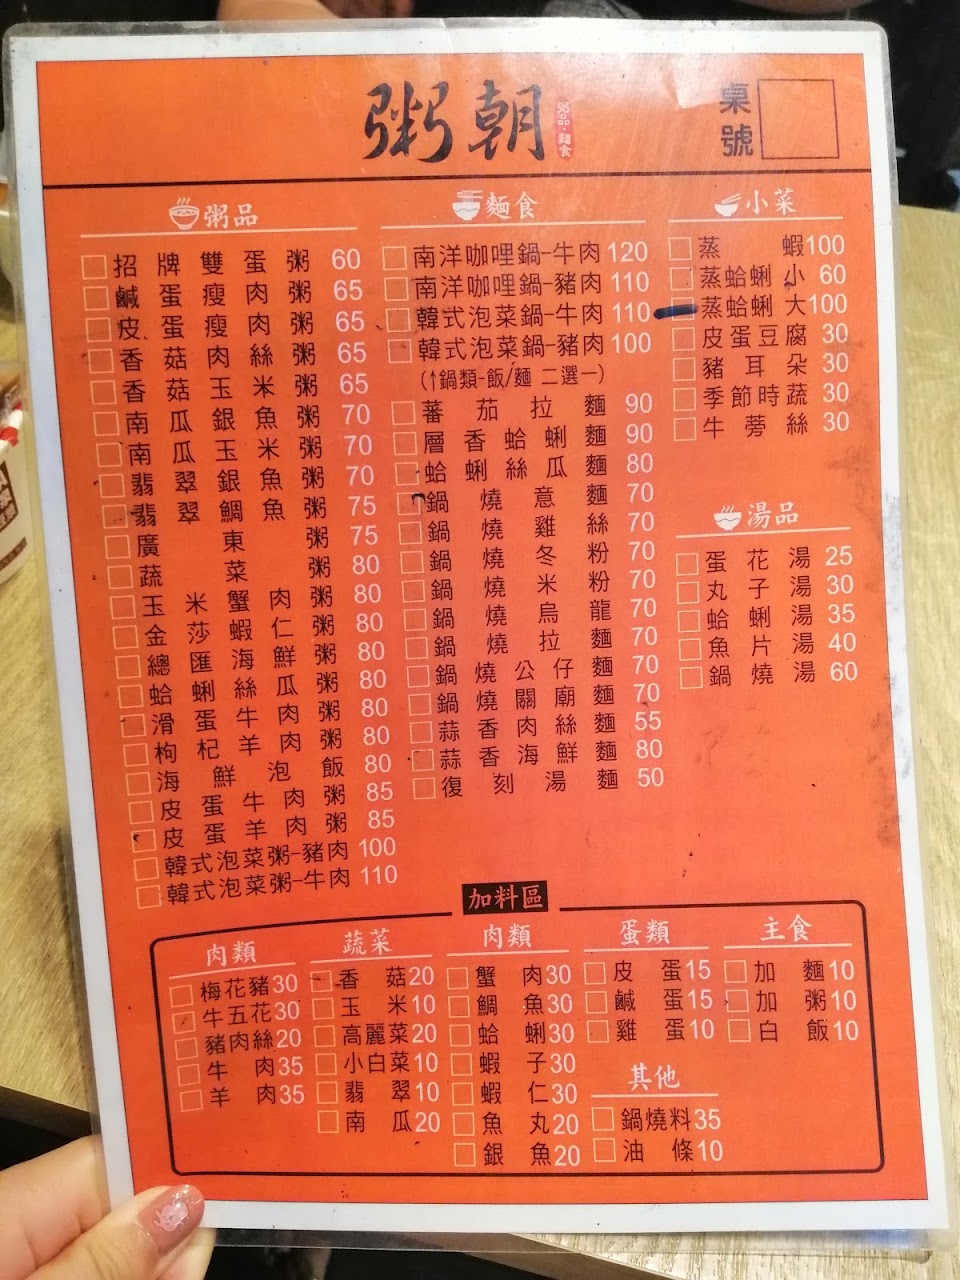 粥朝
粥品・麵食
桌號
粥品
招牌雙蛋粥 60
鹹蛋瘦肉粥 65
皮蛋瘦肉粥 65
香菇肉絲粥 65
香菇玉米粥 65
南瓜銀魚粥 70
南瓜玉米粥 70
翡翠銀魚粥 70
翡翠鯛魚粥 75
廣東粥 75
蔬菜粥 80
玉米蟹肉粥 80
金莎蝦仁粥 80
總匯海鮮粥 80
蛤蜊絲瓜粥 80
滑蛋牛肉粥 80
枸杞羊肉粥 80
海鮮泡飯 80
皮蛋牛肉粥 85
皮蛋羊肉粥 85
韓式泡菜粥-豬肉 100
韓式泡菜粥-牛肉 110
麵食
南洋咖哩鍋-牛肉 120
南洋咖哩鍋-豬肉 110
韓式泡菜鍋-牛肉 110
韓式泡菜鍋-豬肉 100
(↑鍋類-飯/麵 二選一)
蕃茄拉麵 90
層香蛤蜊麵 90
蛤蜊絲瓜麵 80
鍋燒意麵 70
鍋燒雞絲 70
鍋燒冬粉 70
鍋燒米粉 70
鍋燒烏龍 70
鍋燒拉麵 70
鍋燒公仔麵 70
鍋燒關廟麵 70
蒜香肉絲麵 55
蒜香海鮮麵 80
復刻湯麵 50
小菜
蒸蝦 100
蒸蛤蜊小 60
蒸蛤蜊大 100
皮蛋豆腐 30
豬耳朵 30
季節時蔬 30
牛蒡絲 30
湯品
蛋花湯 25
丸子湯 30
蛤蜊湯 35
魚片湯 40
鍋燒湯 60
加料區
肉類
梅花豬 30
牛五花 30
豬肉絲 20
牛肉 35
羊肉 35
蔬菜
香菇 20
玉米 10
高麗菜 20
小白菜 10
翡翠 10
南瓜 20
肉類
蟹肉 30
鯛魚 30
蛤蜊 30
蝦子 30
蝦仁 30
魚丸 20
銀魚 20
蛋類
皮蛋 15
鹹蛋 15
雞蛋 10
其他
鍋燒料 35
油條 10
主食
加麵 10
加粥 10
白飯 10